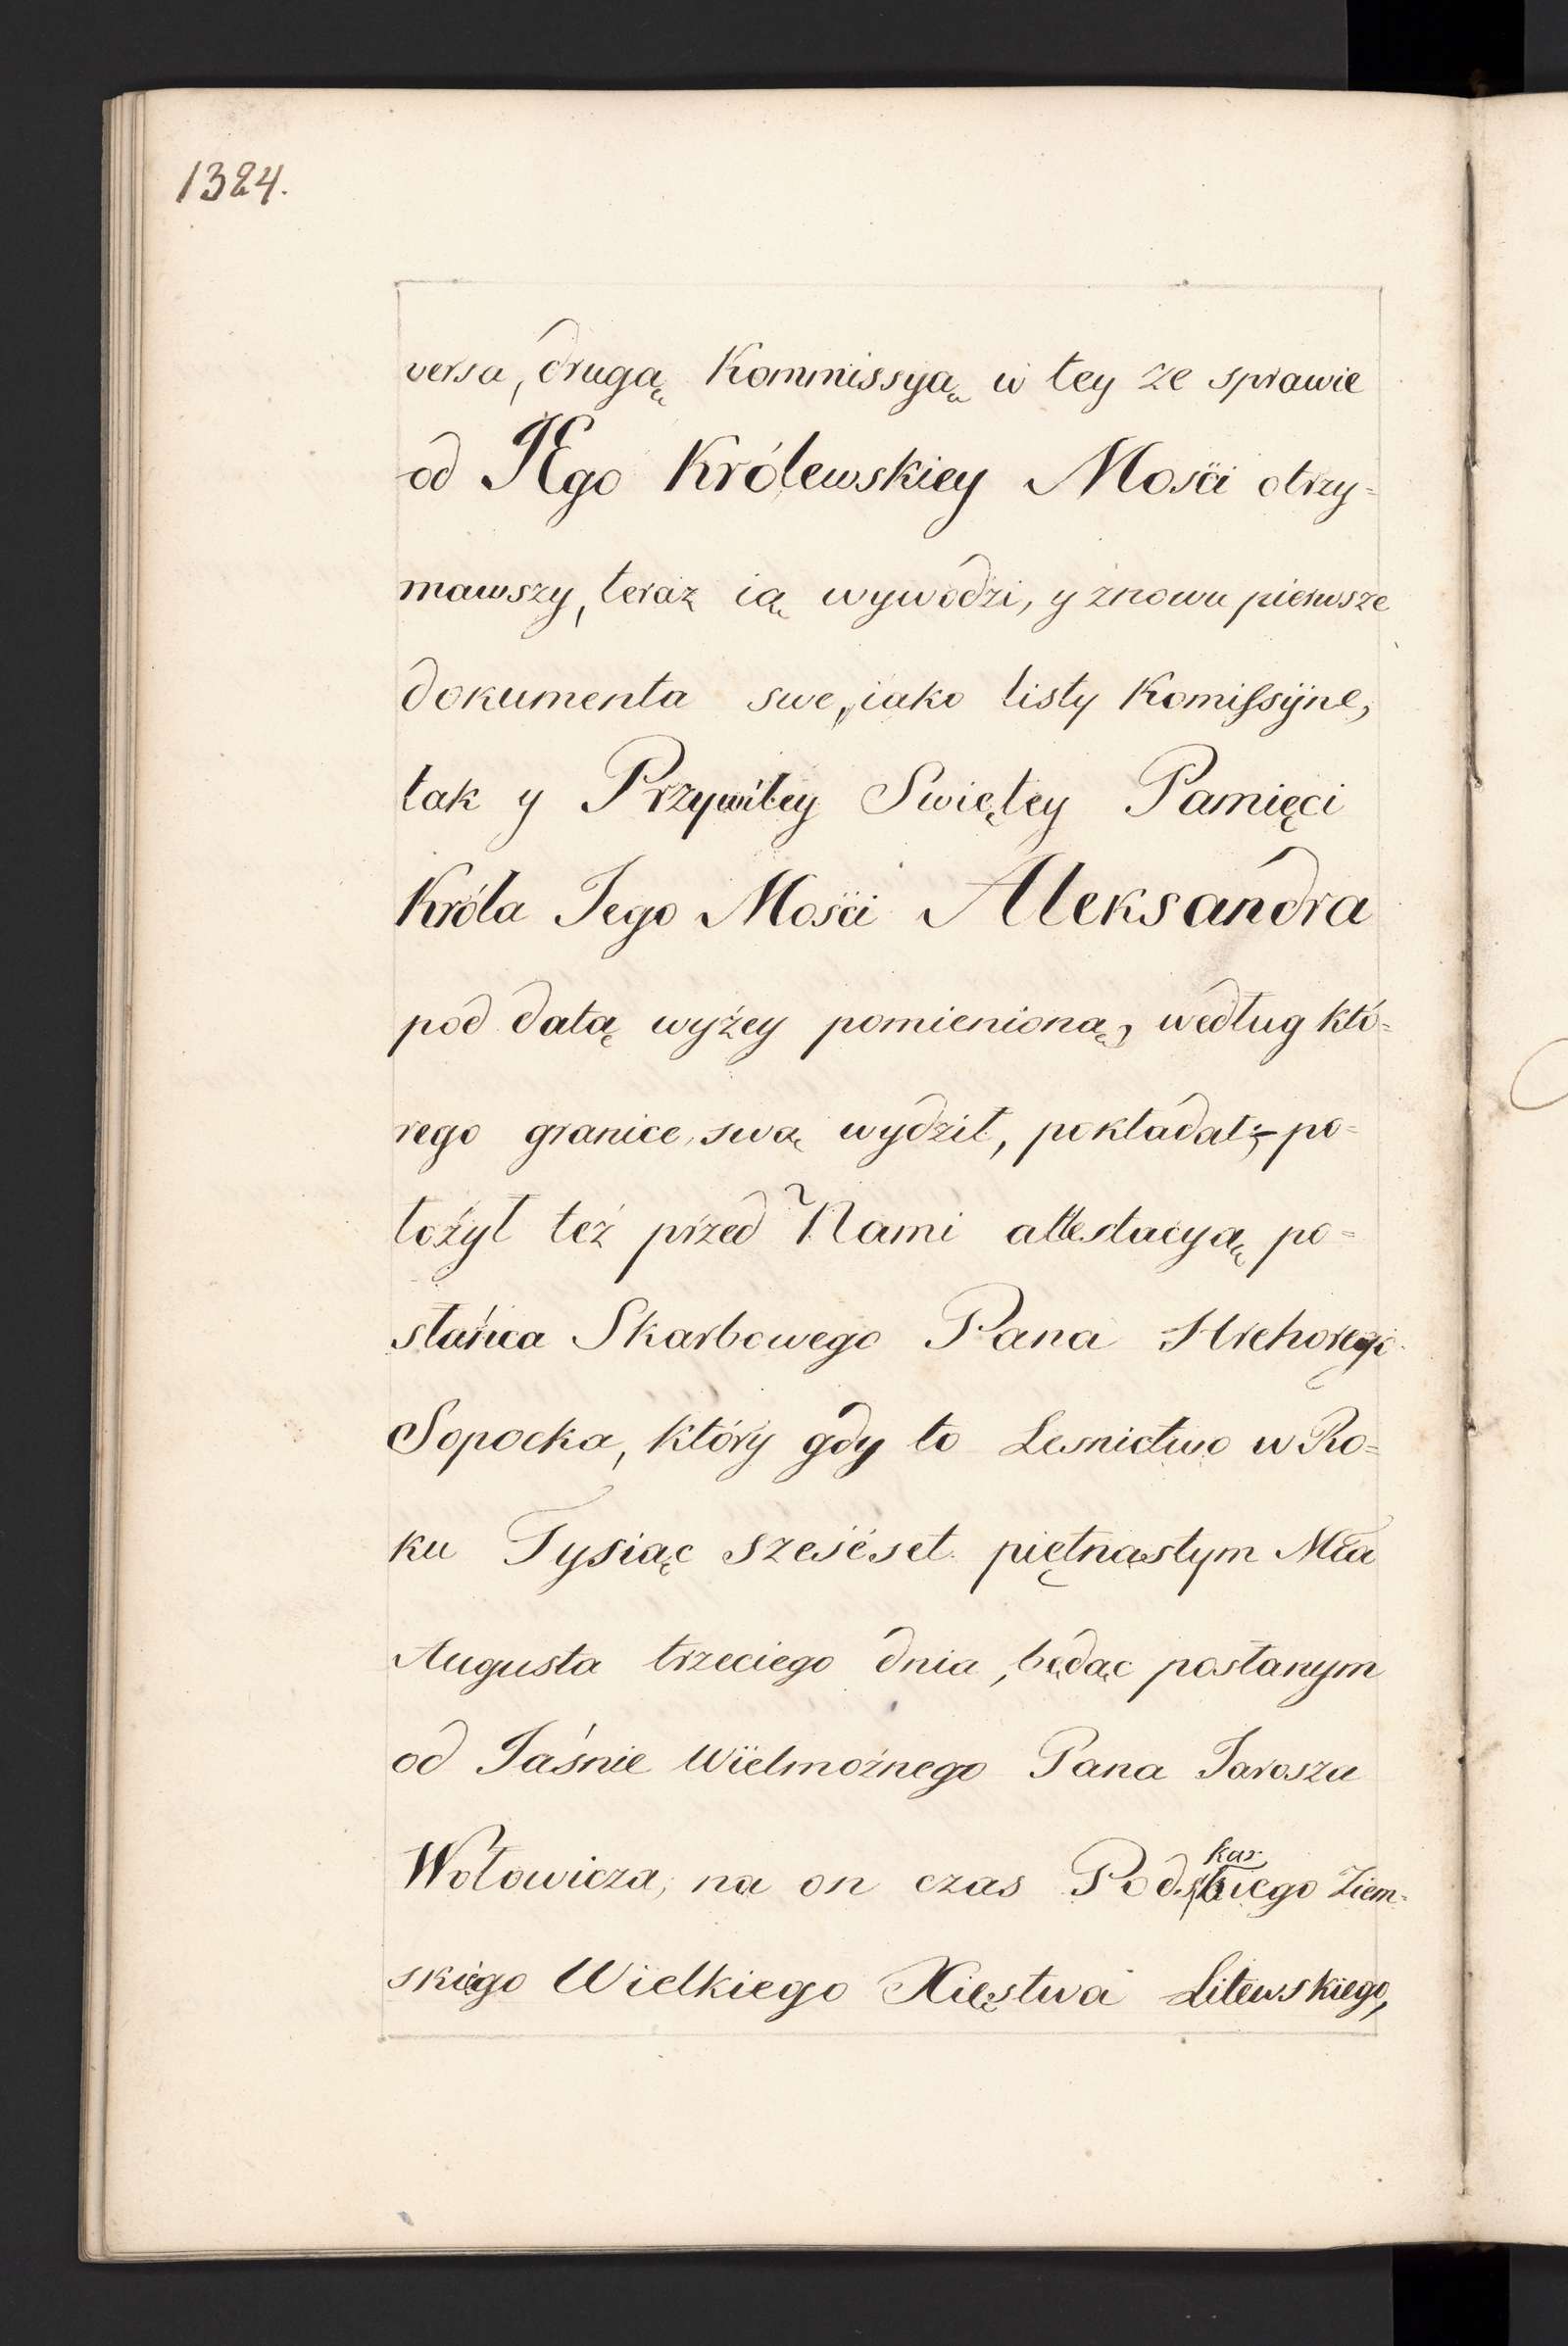 1324.
versa, drugą Kommissyą w tey ze sprawie
od JEgo Królewskiey Mosci otrzy=
mawszy, teraz ią wywodzi, y znowu pierwsze
dokumenta swe, iako listy Komissyine,
tak y Przywiley Swiętey Pamięci
Króla Jego Mosci Aleksandra
pod datą wyżey pomienioną, według któ=
rego granice swą wydził, pokładał;- po=
łożył też przed Nami attestacyą po=
słańca Skarbowego Pana Hrehorego
Sopocka, który gdy to Lesnictwo w Ro=
ku Tysiąc sześćset piętnastym Mca
Augusta trzeciego dnia, będąc posłanym
od Jaśnie Wielmożnego Pana Jarosza
Wołowicza, na on czas Podskarbiego Ziem=
skiego Wielkiego Xięstwa Litewskiego,